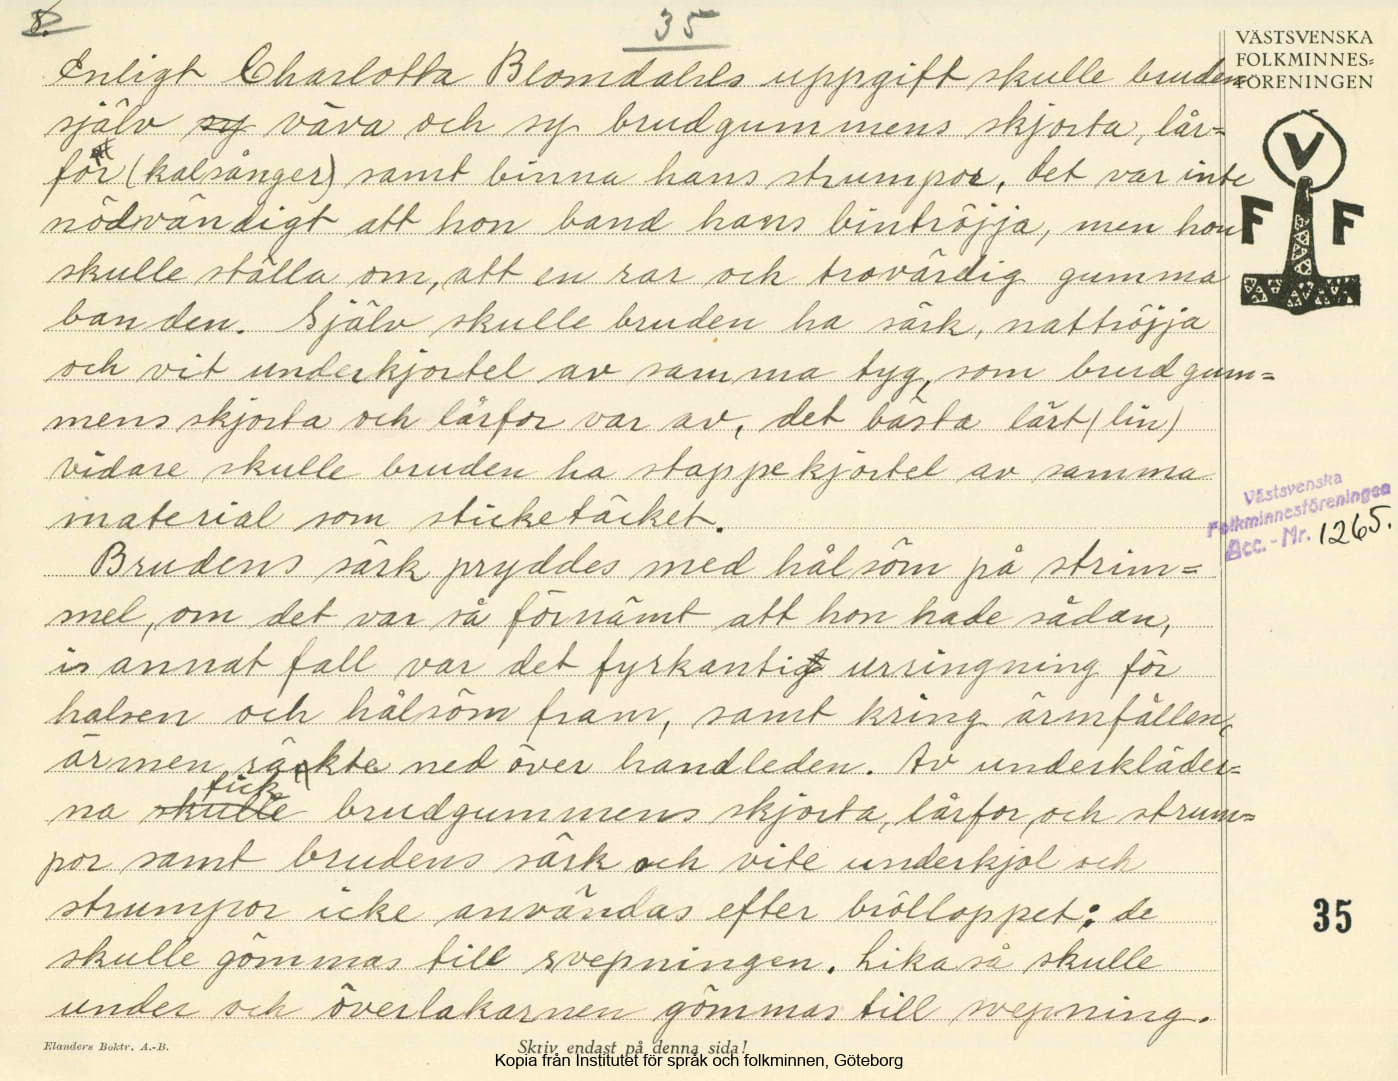 8.
35
VÄSTSVENSKA
FOLKMINNES=
FÖRENINGEN
Enligt Charlotta Blomdahls uppgift skulle bruden
själv sy väva och sy brudgummens skjorta, lår=
for (kalsånger) samt binna hans strumpor, det var inte
nödvändigt att hon band hans bintröjja, men hon
skulle ställa om, att en rar och trovärdig gumma
ban den. Själv skulle bruden ha särk, nattröjja
och vit underkjortel av samma tyg, som brudgum=
mens skjorta och lårfor var av, det bästa lärt (lin)
vidare skulle bruden ha stoppekjortel av samma
material som sticketäcket.
Brudens särk pryddes med hålsöm på strim=
mel, om det var så förnämt att hon hade sådan,
is annat fall var det fyrkantig urringning för
halsen och hålsöm fram, samt kring ärmfållen,
ärmen räckte ned över handleden. Av underkläder=
na skulle fick brudgummens skjorta, lårfor, och strum=
por samt brudens särk och vite underkjol och
strumpor icke användas efter brölloppet; de
skulle gömmas till svepningen. Likaså skulle
under och överlakarnen gömmas till svepning.
V
F F
Västsvenska
Folkminnesföreningen
Acc. - Nr. 1265.
35
Elanders Boktr. A.-B.
Skriv endast på denna sida!
Kopia från Institutet för språk och folkminnen, Göteborg